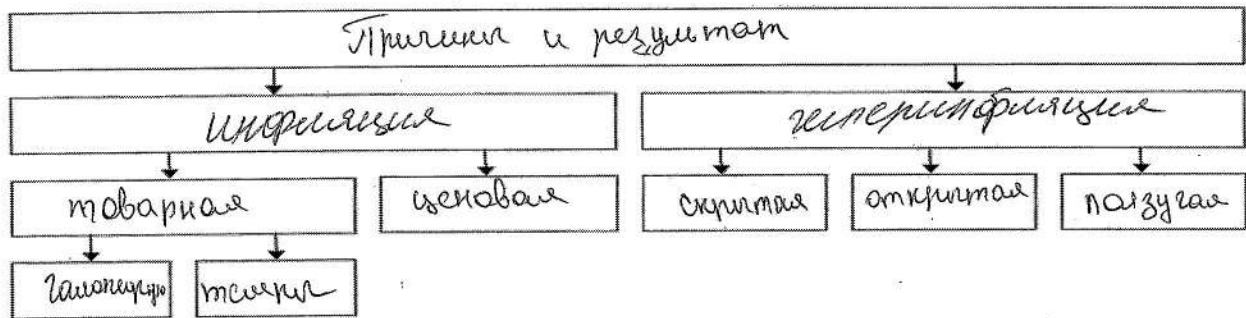 Причины и результат
инфляция гиперинфляция
товарная ценовая скрытая открытая ползучая